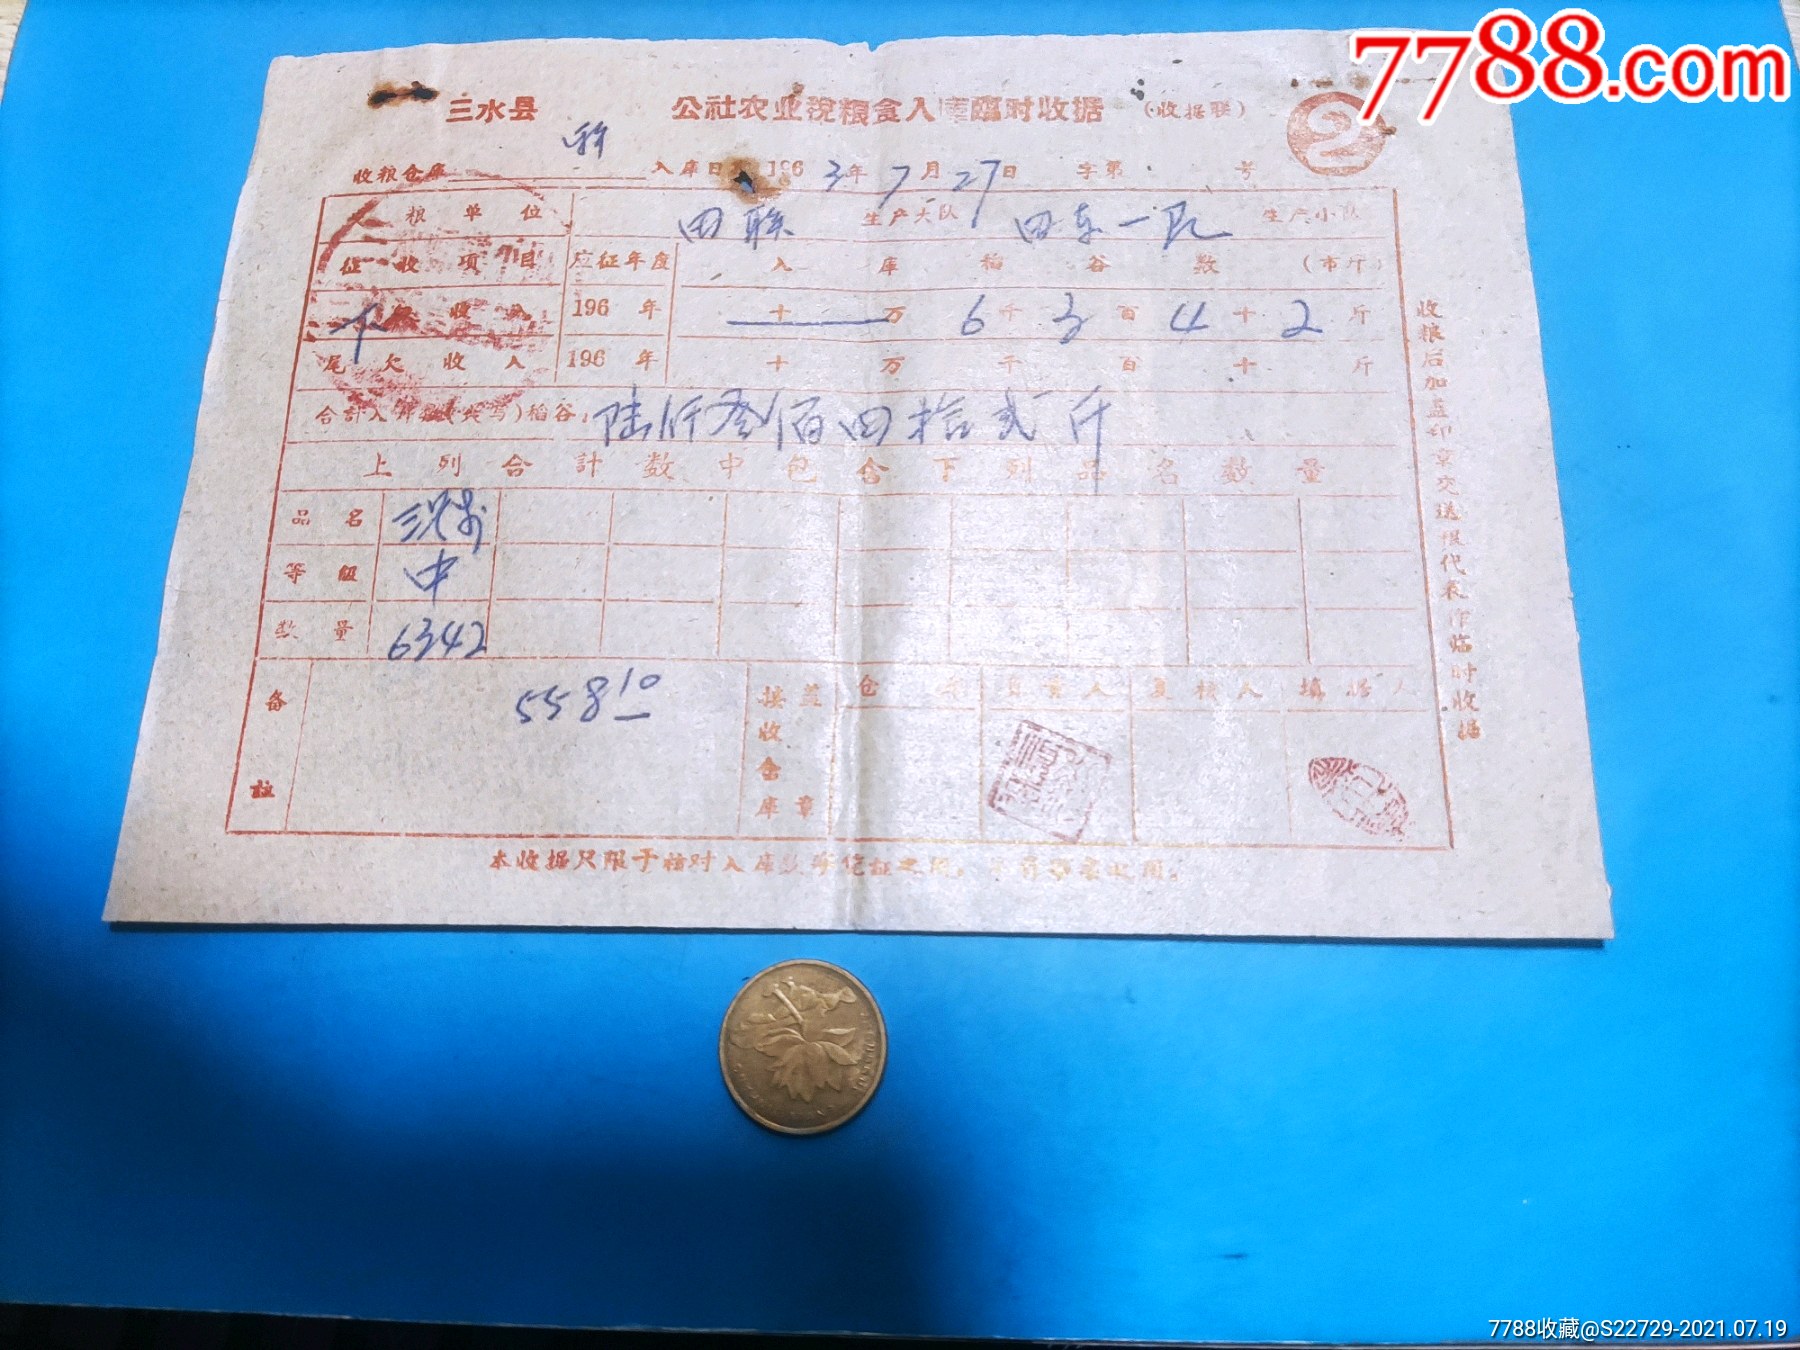 7788.com
三水县 公社农业税粮食入库临时收据 (收据联) 2
收粮仓库 入库日 1963年7月27日 字第 号
粮单位 田联 生产大队 田东一队 生产小队
征收项目 应征年度 入库稻谷数 (市斤)
收入 196 年 十 万 6千3百4十2斤
尾欠收入 196 年 十 万 千 百 十 斤
合計入库 稻谷: 陆仟叁佰四拾弍斤
上列合計数中包含下列品名数量
品名
等級 中
数量 6342
备註 5581⁰
接收仓库盖章 仓库 负责人 复核人 填据人
本收据只限于核对入库数 凭证之用,
收粮后加盖印章交送粮代表作临时收据
7788收藏@S22729-2021.07.19